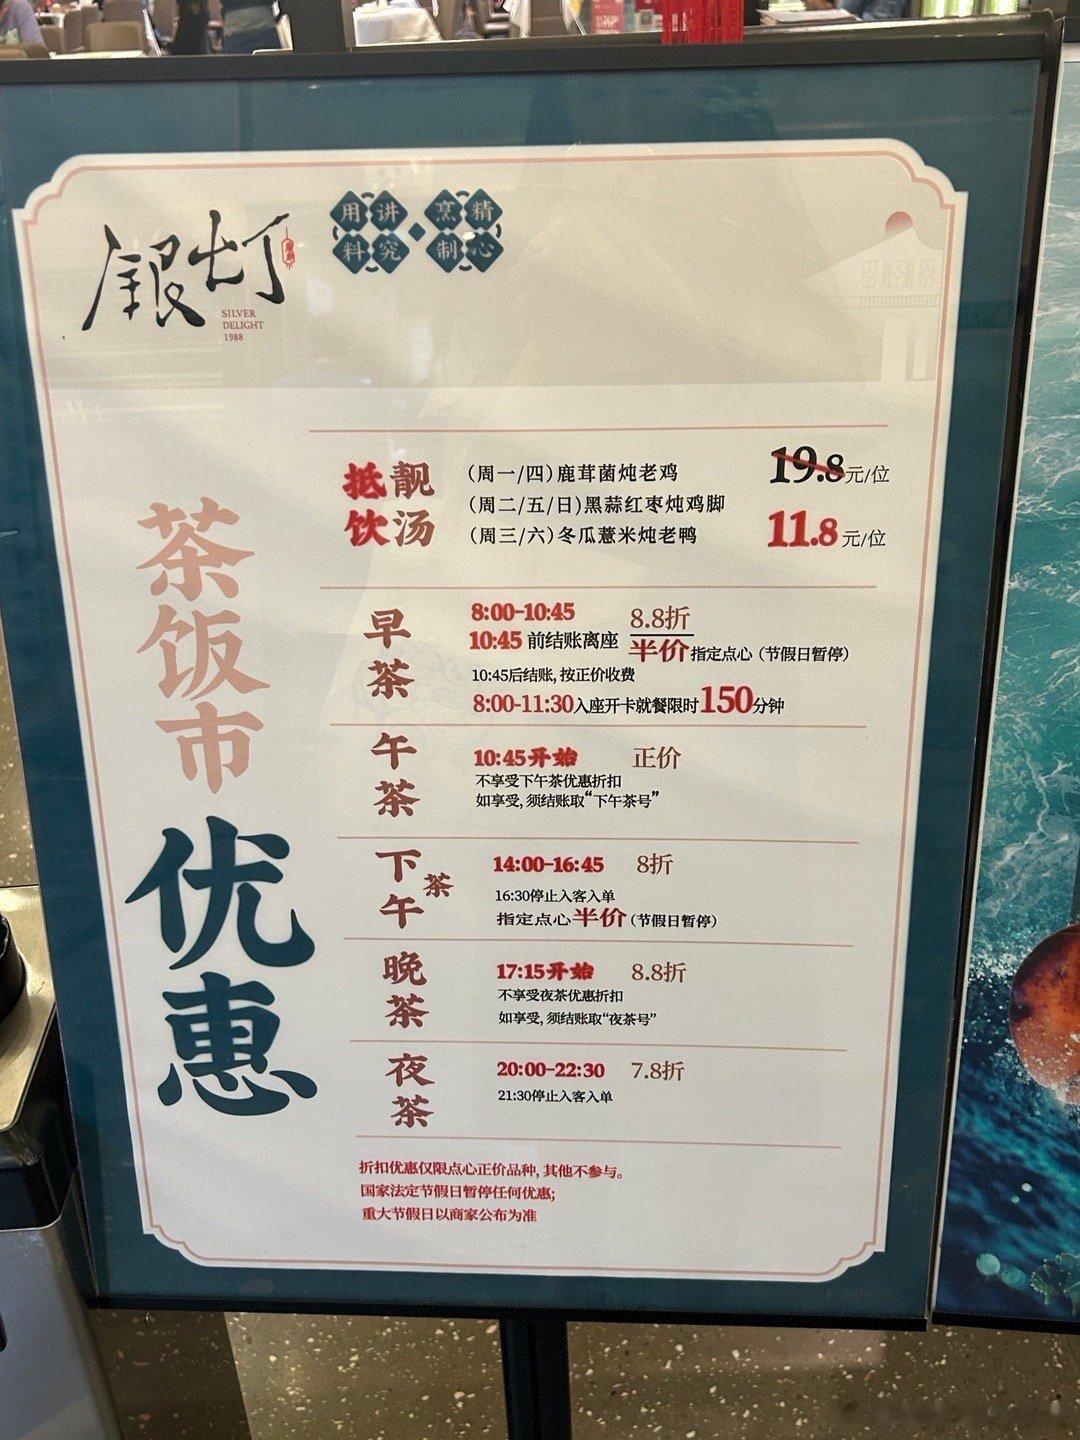 銀灯
SILVER
DELIGHT
1988
用料讲究 精心烹制
茶饭市优惠
抵饮靓汤
(周一/四)鹿茸菌炖老鸡
(周二/五/日)黑蒜红枣炖鸡脚
(周三/六)冬瓜薏米炖老鸭
19.8元/位
11.8元/位
早茶
8:00-10:45 8.8折
10:45前结账离座 半价指定点心(节假日暂停)
10:45后结账,按正价收费
8:00-11:30入座开卡就餐限时150分钟
午茶
10:45开始 正价
不享受下午茶优惠折扣
如享受,须结账取“下午茶号”
下午茶
14:00-16:45 8折
16:30停止入客入单
指定点心半价(节假日暂停)
晚茶
17:15开始 8.8折
不享受夜茶优惠折扣
如享受,须结账取“夜茶号”
夜茶
20:00-22:30 7.8折
21:30停止入客入单
折扣优惠仅限点心正价品种,其他不参与。
国家法定节假日暂停任何优惠;
重大节假日以商家公布为准